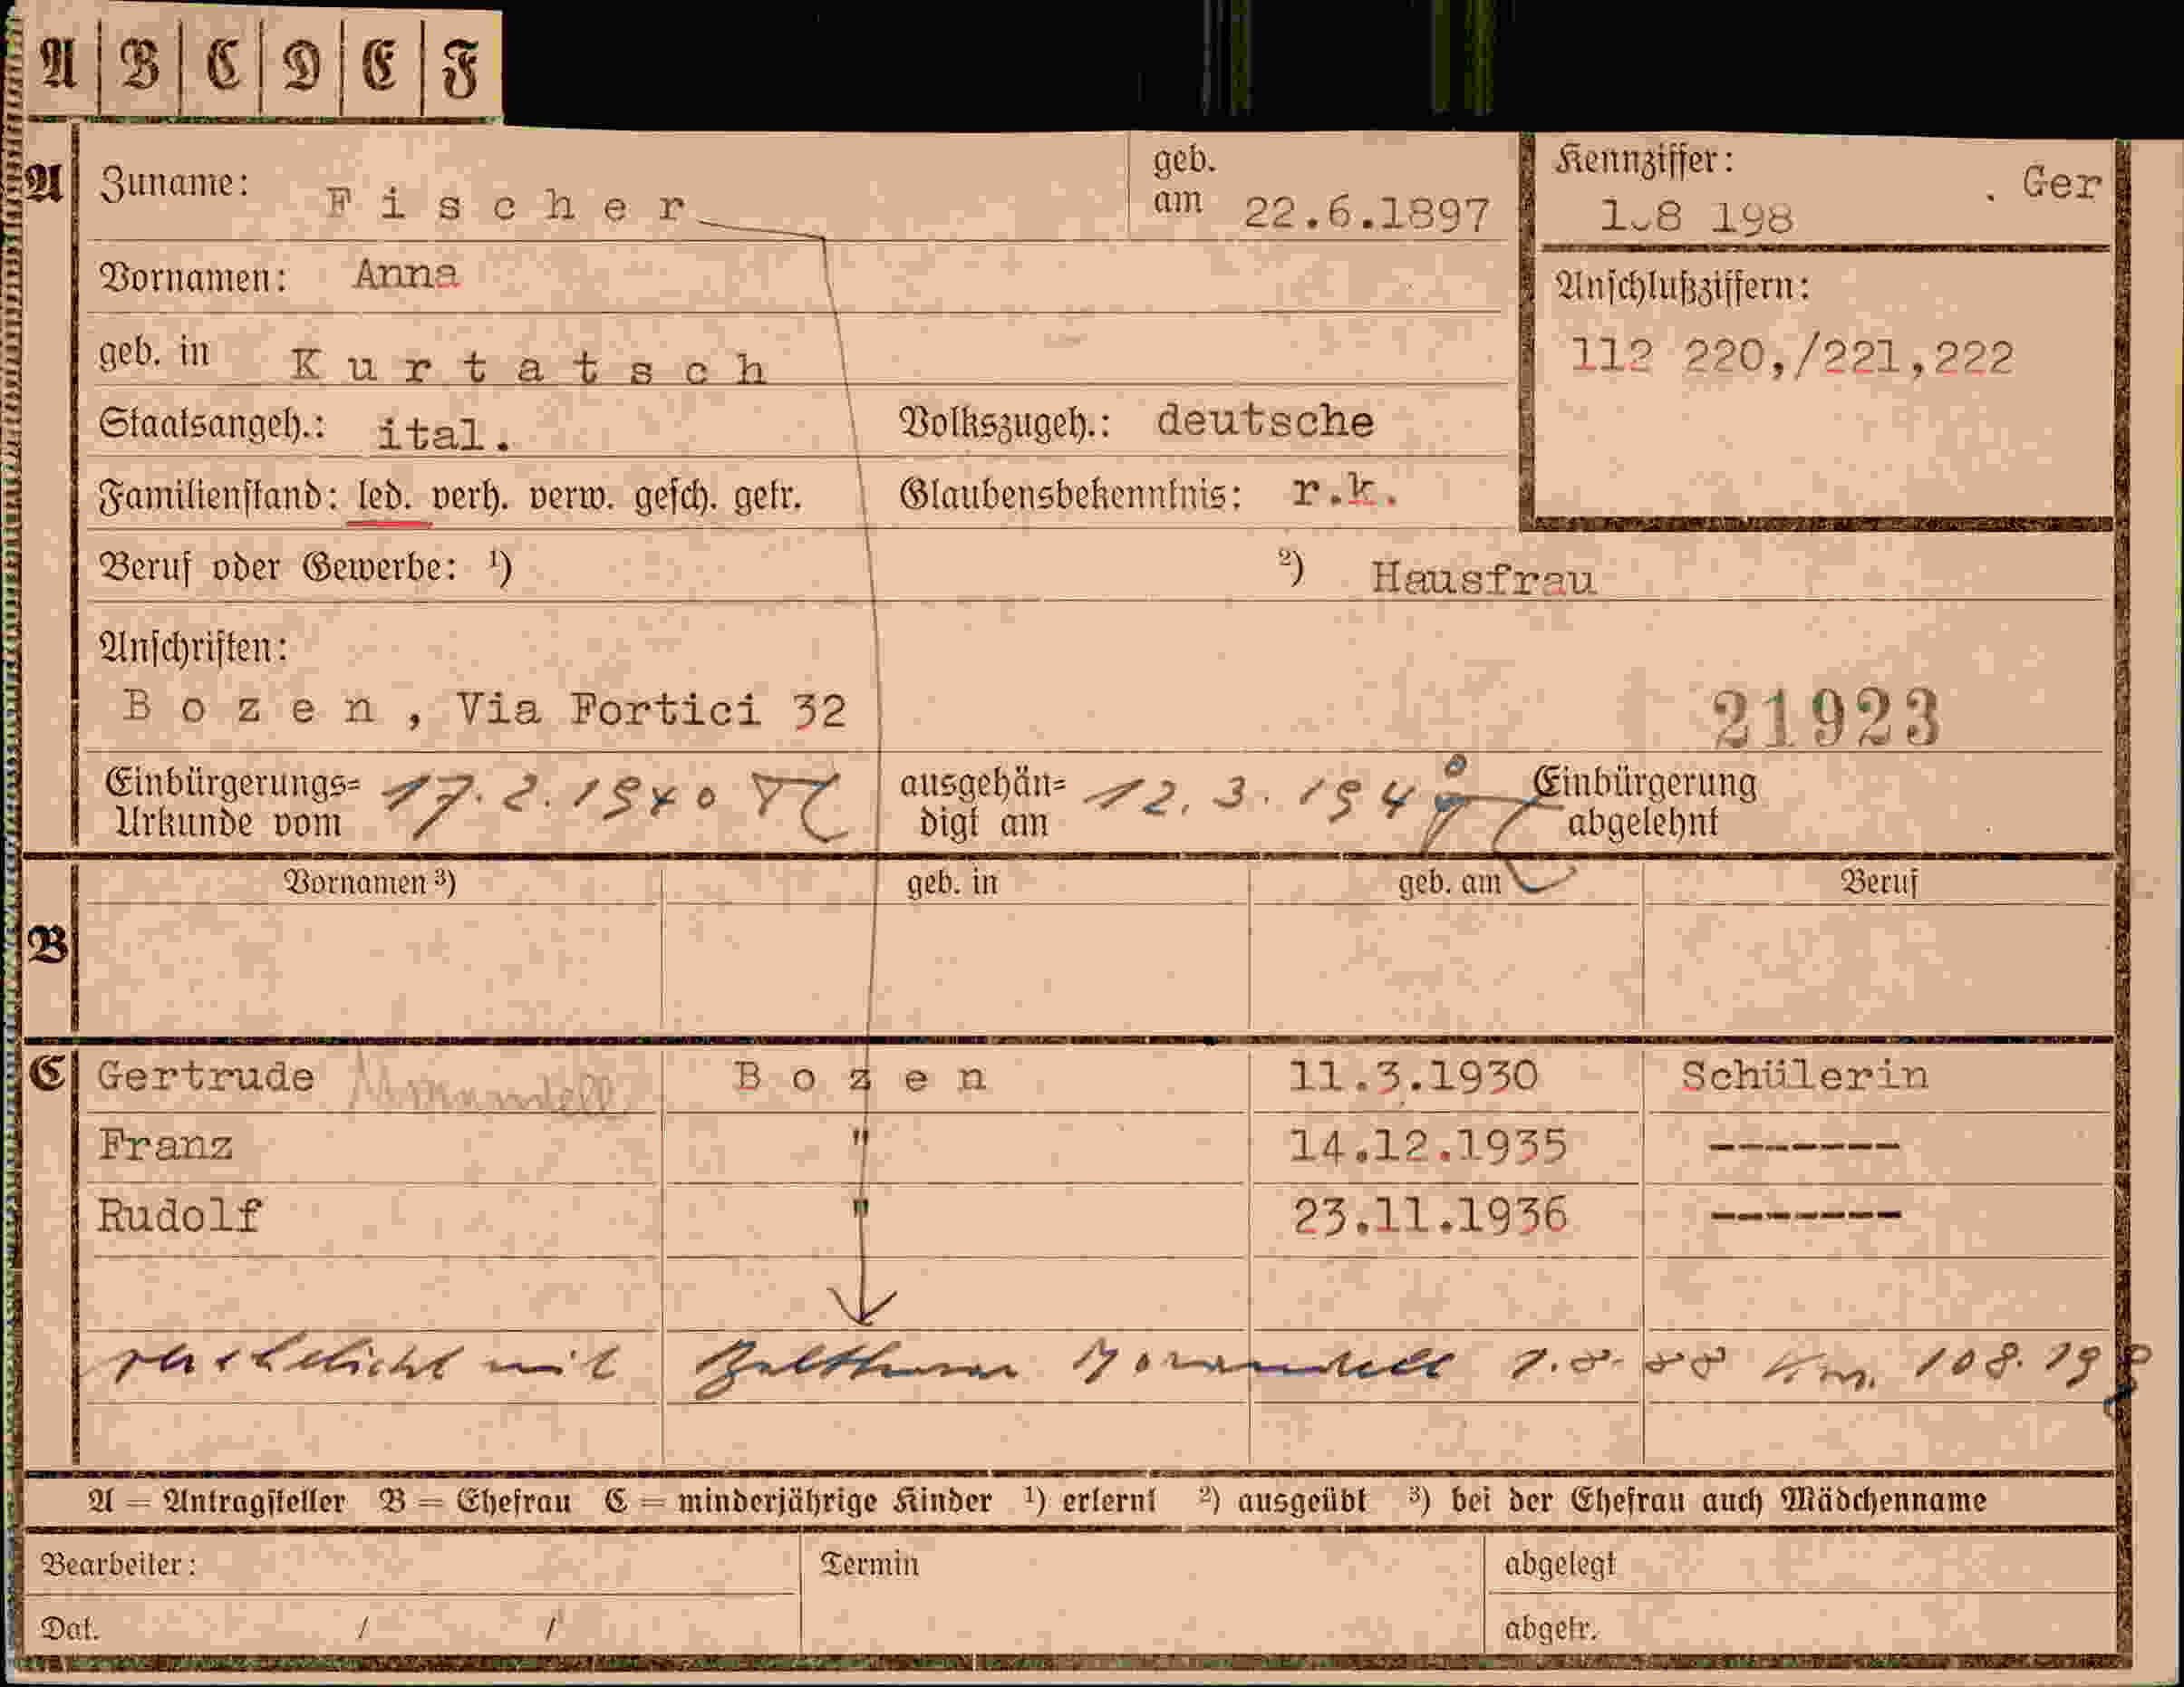 A | B | C | D | E | F
A Zuname: Fischer geb. am 22.6.1897 Kennziffer: 1 8 198 . Ger
Vornamen: Anna
Anschlußziffern:
geb. in Kurtatsch 112 220,/221,222
Staatsangeh.: ital. Volkszugeh.: deutsche
Familienstand: led. verh. verw. gesch. getr. Glaubensbekenntnis: r.k.
Beruf oder Gewerbe: 1) 2) Hausfrau
Anschriften:
Bozen, Via Portici 32 21923
Einbürgerungs= Urkunde vom 17.2.1940 ausgehän= digt am 12.3.1940 Einbürgerung abgelehnt
Vornamen 3) geb. in geb. am Beruf
B
C Gertrude Morandell Bozen 11.3.1930 Schülerin
Franz " 14.12.1935 -------
Rudolf " 23.11.1936 -------
verehelicht mit Balthasar Morandell 7.8.88 Knz. 108.198
A = Antragsteller B = Ehefrau C = minderjährige Kinder 1) erlernt 2) ausgeübt 3) bei der Ehefrau auch Mädchenname
Bearbeiter: Termin abgelegt
Dat. / / abgetr.